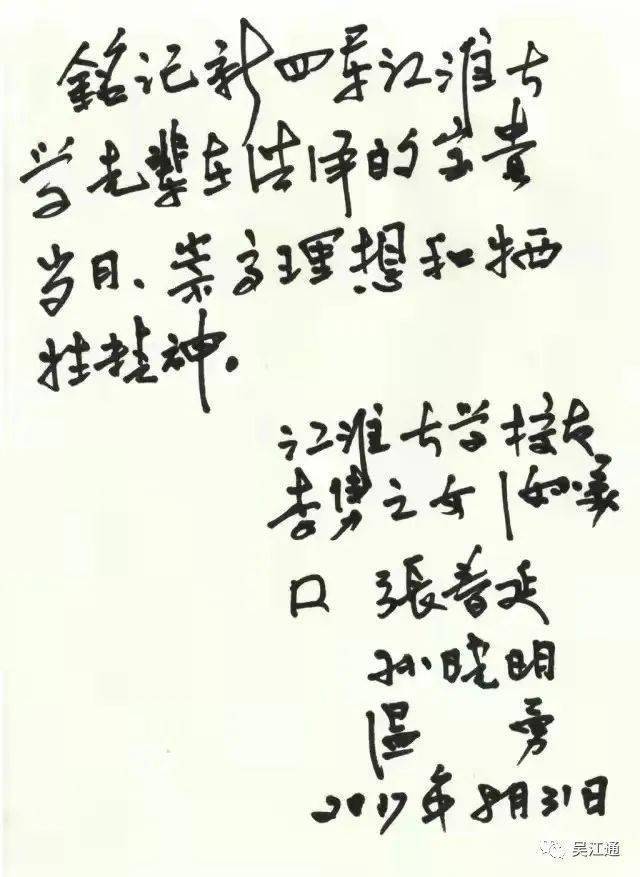 銘记新四军江淮大
学先辈在洪泽的宝贵
岁月、崇高理想和牺
牲精神。
江淮大学校友
李勇之女
口 張
孙晓明
温 勇
2017年8月31日
吴江通